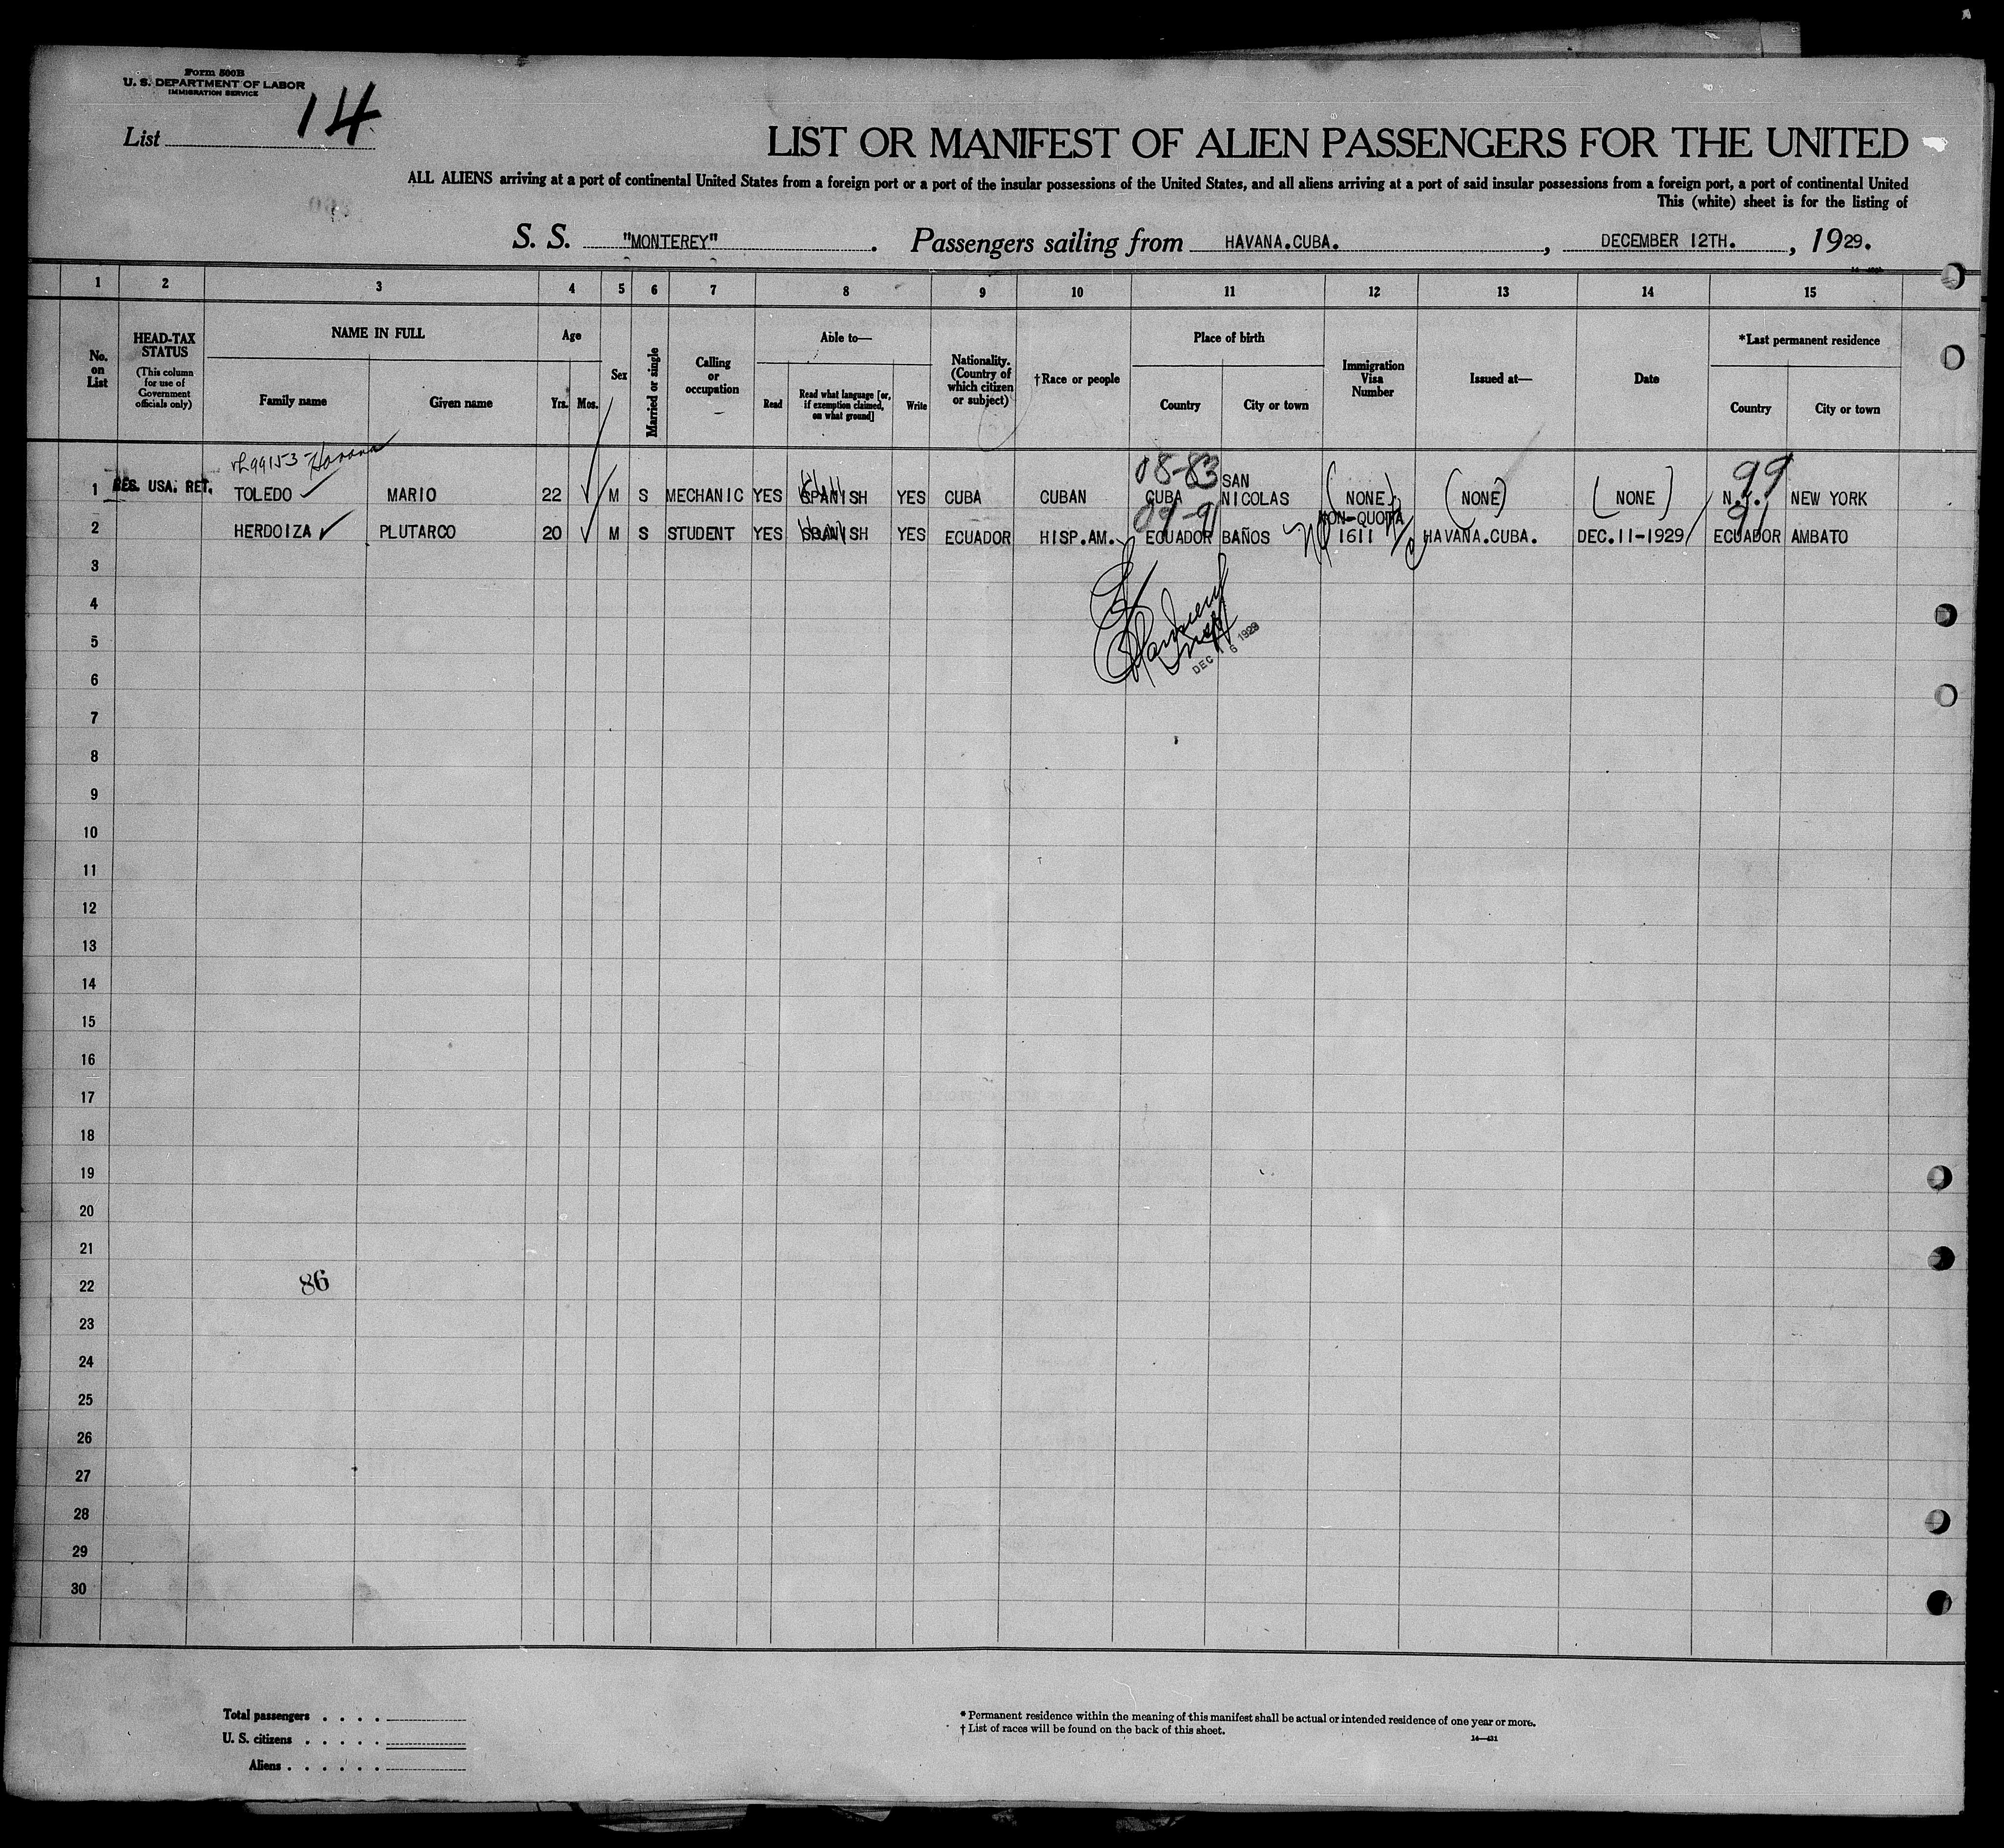 Form 500B
U. S. DEPARTMENT OF LABOR
IMMIGRATION SERVICE
List 14
LIST OR MANIFEST OF ALIEN PASSENGERS FOR THE UNITED
ALL ALIENS arriving at a port of continental United States from a foreign port or a port of the insular possessions of the United States, and all aliens arriving at a port of said insular possessions from a foreign port, a port of continental United
This (white) sheet is for the listing of
S. S. "MONTEREY" . Passengers sailing from HAVANA.CUBA. , DECEMBER 12TH. , 1929.
1 2 3 4 5 6 7 8 9 10 11 12 13 14 15
No. on List
HEAD-TAX STATUS
(This column for use of Government officials only)
NAME IN FULL
Family name Given name
Age
Yrs. Mos.
Sex
Married or single
Calling or occupation
Able to—
Read
Read what language [or, if exemption claimed, on what ground]
Write
Nationality. (Country of which citizen or subject)
†Race or people
Place of birth
Country City or town
Immigration Visa Number
Issued at—
Date
*Last permanent residence
Country City or town
99153-Havana
08-83 99
1 RES. USA. RET. TOLEDO MARIO 22 M S MECHANIC YES SPANISH YES CUBA CUBAN CUBA SAN NICOLAS (NONE) (NONE) (NONE) N.Y. NEW YORK
09-91 91
2 HERDOIZA PLUTARCO 20 M S STUDENT YES SPANISH YES ECUADOR HISP.AM. ECUADOR BAÑOS NON-QUOTA 1611 HAVANA.CUBA. DEC.11-1929 ECUADOR AMBATO
3
4
5
DEC 16 1929
6
7
8
9
10
11
12
13
14
15
16
17
18
19
20
21
22
86
23
24
25
26
27
28
29
30
Total passengers . . . .
U. S. citizens . . . . .
Aliens . . . . . .
* Permanent residence within the meaning of this manifest shall be actual or intended residence of one year or more.
† List of races will be found on the back of this sheet.
14—431